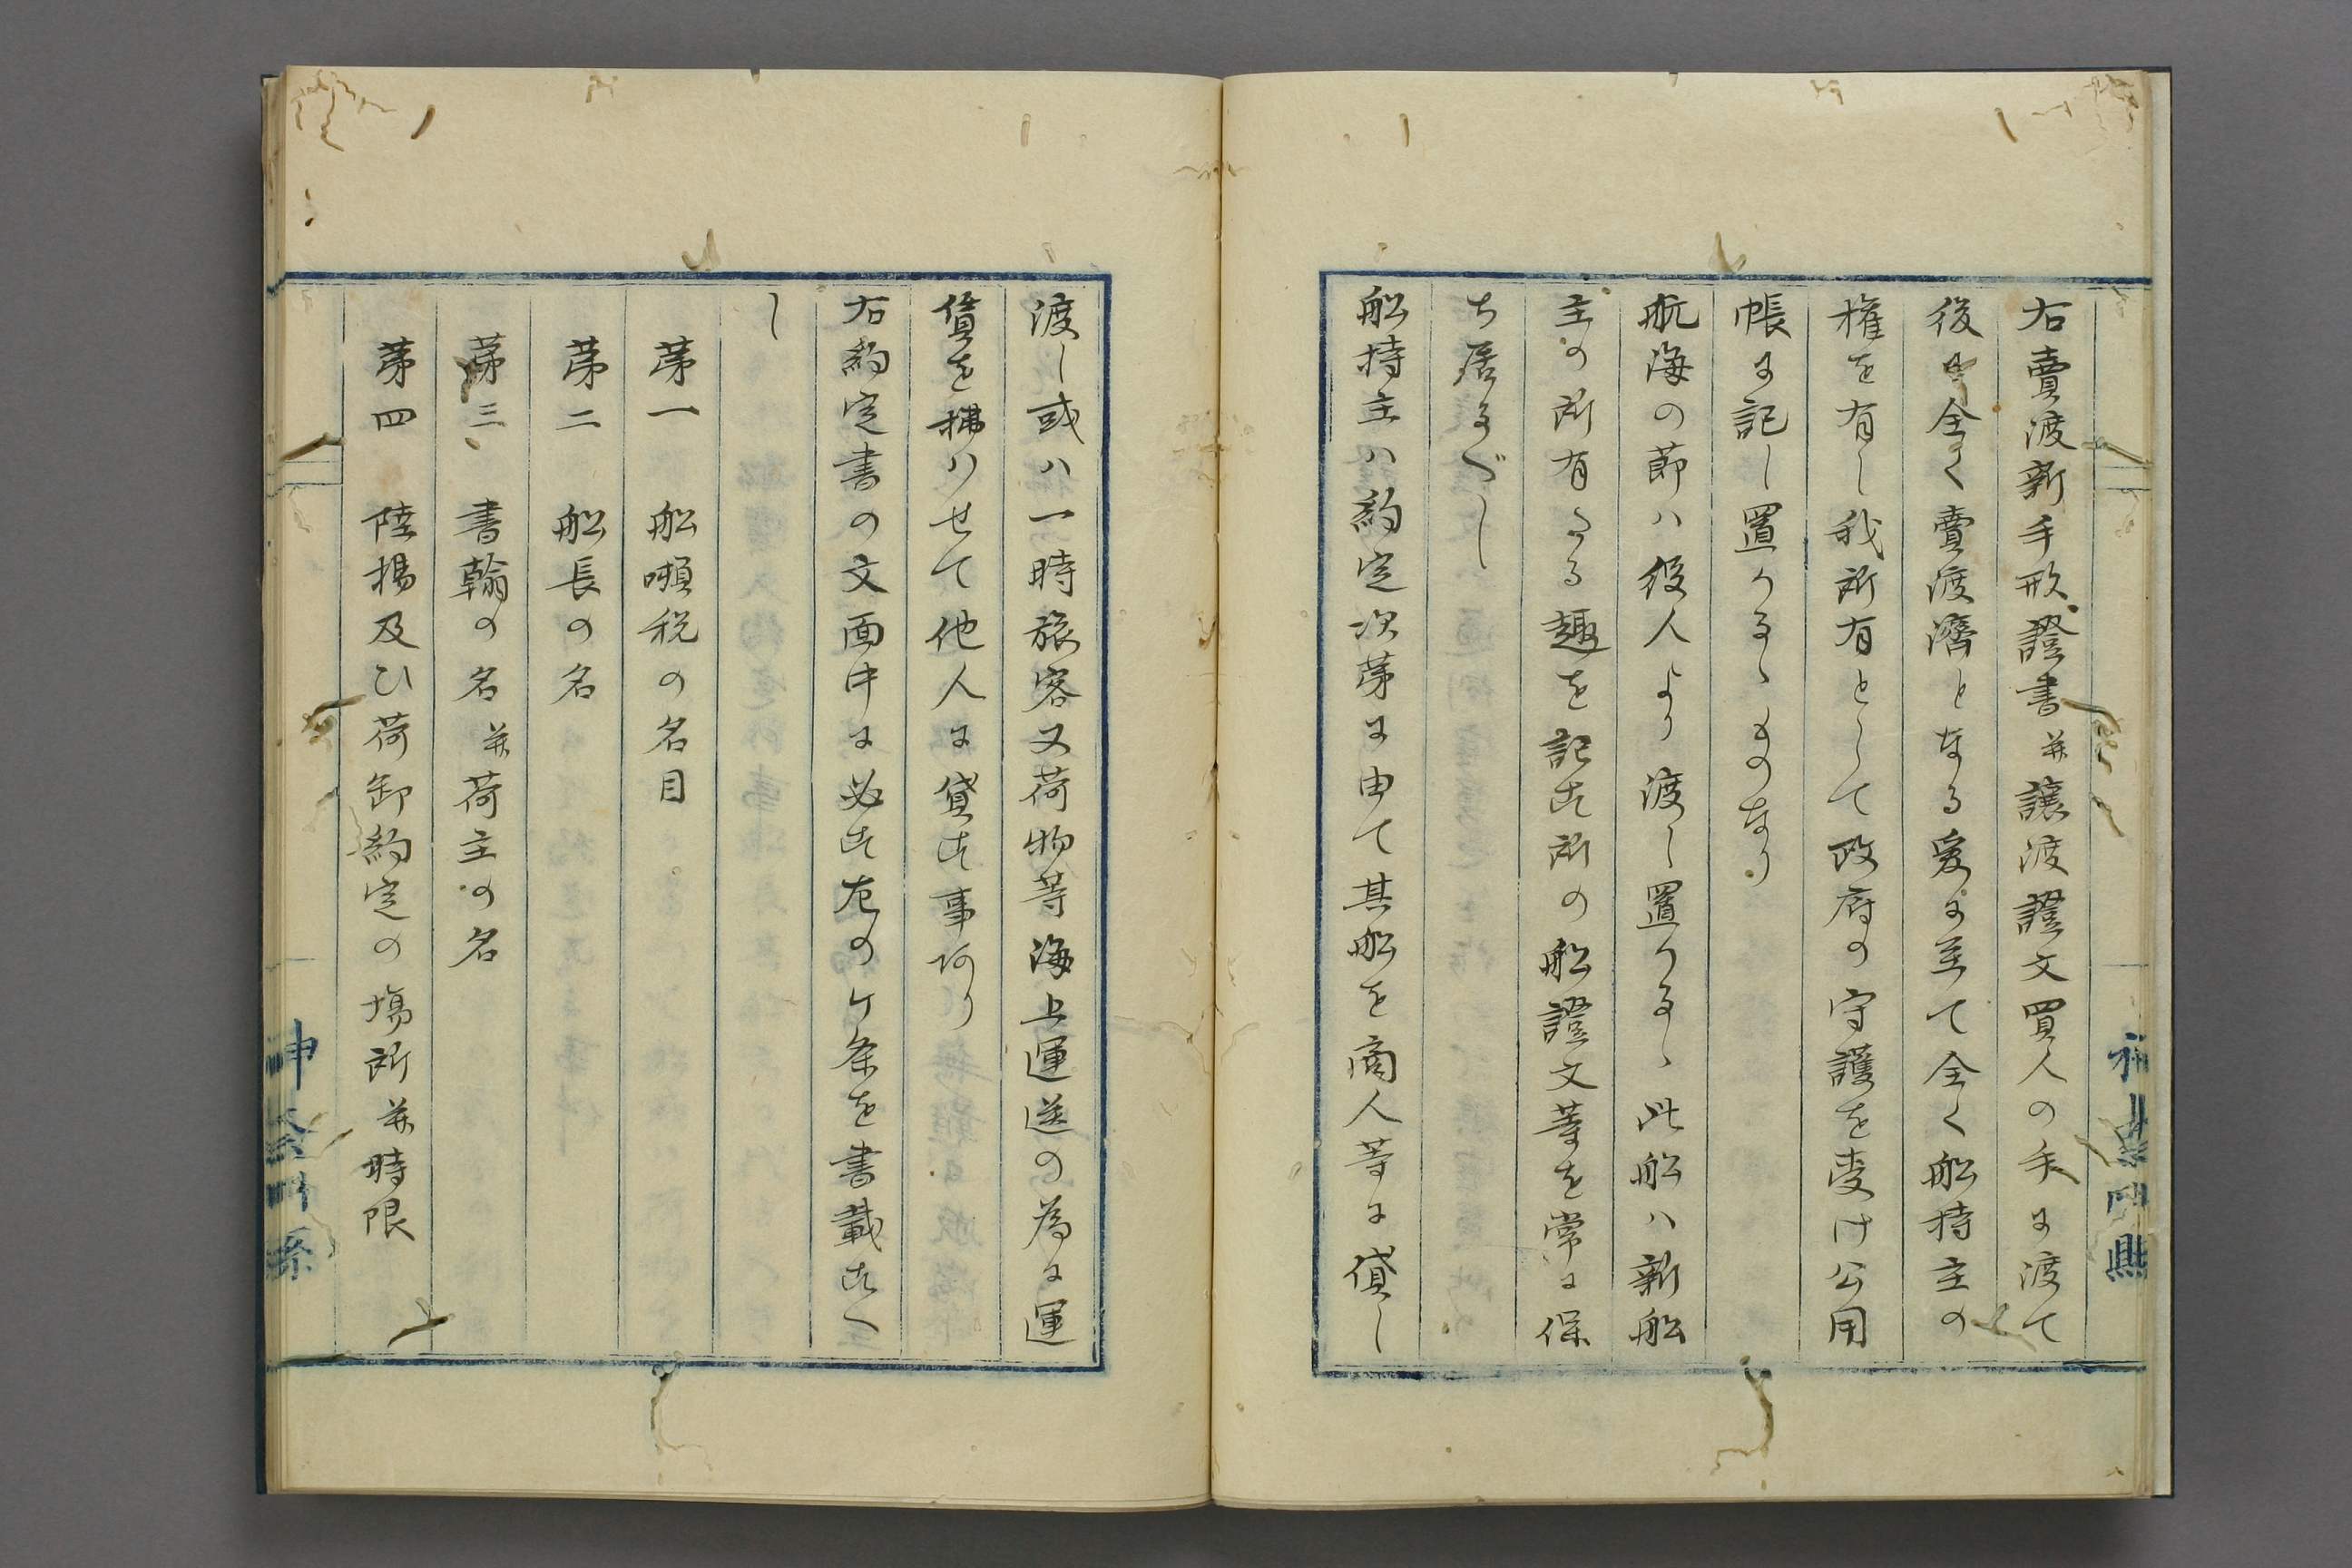 右賣渡新手形證書并讓渡證文買人の手に渡て
後全く賣渡濟となる爰に至て全く船持主の
権を有し我所有として政府の守護を受け公用
帳に記し置かるゝものなり
航海の節ハ役人より渡し置かるゝ此船ハ新船
主の所有たる趣を記す所の船證文等を常に保
ち居るべし
船持主ハ約定次第に由て其船を商人等に貸し
渡し或ハ一時旅客又荷物等海上運送の為に運
賃を拂ハせて他人に貸す事あり
右約定書の文面中に必す左のケ条を書載すへ
し
第一 船噸税の名目
第二 船長の名
第三 書翰の名并荷主の名
第四 陸揚及ひ荷卸約定の場所并時限
神奈川縣